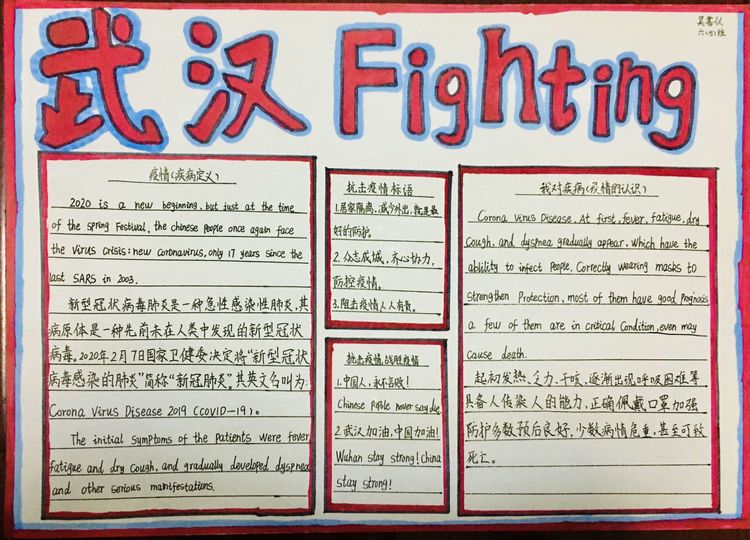 吴书仪
六(5)班
武汉 Fighting
疫情(疾病定义)
2020 is a new beginning, but just at the time
of the spring Festival, the chinese People once again face
the Virus crisis: new coronavirus, only 17 years since the
last SARS in 2003.
新型冠状病毒肺炎是一种急性感染性肺炎,其
病原体是一种先前未在人类中发现的新型冠状
病毒。2020年2月7日国家卫健委决定将"新型冠状
病毒感染的肺炎"简称"新冠肺炎",其英文名叫为:
Corona Virus Disease 2019 (COVID—19)。
The initial symptoms of the Patients were fever
fatigue and dry cough, and gradually developed dyspnea
and other serious manifestations.
抗击疫情标语
1.居家隔离,减少外出,就是最
好的防护
2.众志成城,齐心协力,
防控疫情。
3.阻击疫情人人有责。
抗击疫情,战胜疫情
1.中国人,永不言败!
Chinese People never say die.
2.武汉加油,中国加油!
Wuhan stay strong! china
stay strong!
我对疾病(疫情的认识)
Corona Virus Disease. At first, fever, fatigue, dry
Cough, and dyspnea gradually appear. Which have the
ability to infect People. Correctly wearing masks to
strengthen Protection, most of them have good Prognosis
a few of them are in critical Condition, even may
cause death.
起初发热、乏力、干咳,逐渐出现呼吸困难等
具备人传染人的能力,正确佩戴口罩加强
防护多数预后良好,少数病情危重,甚至可致
死亡。